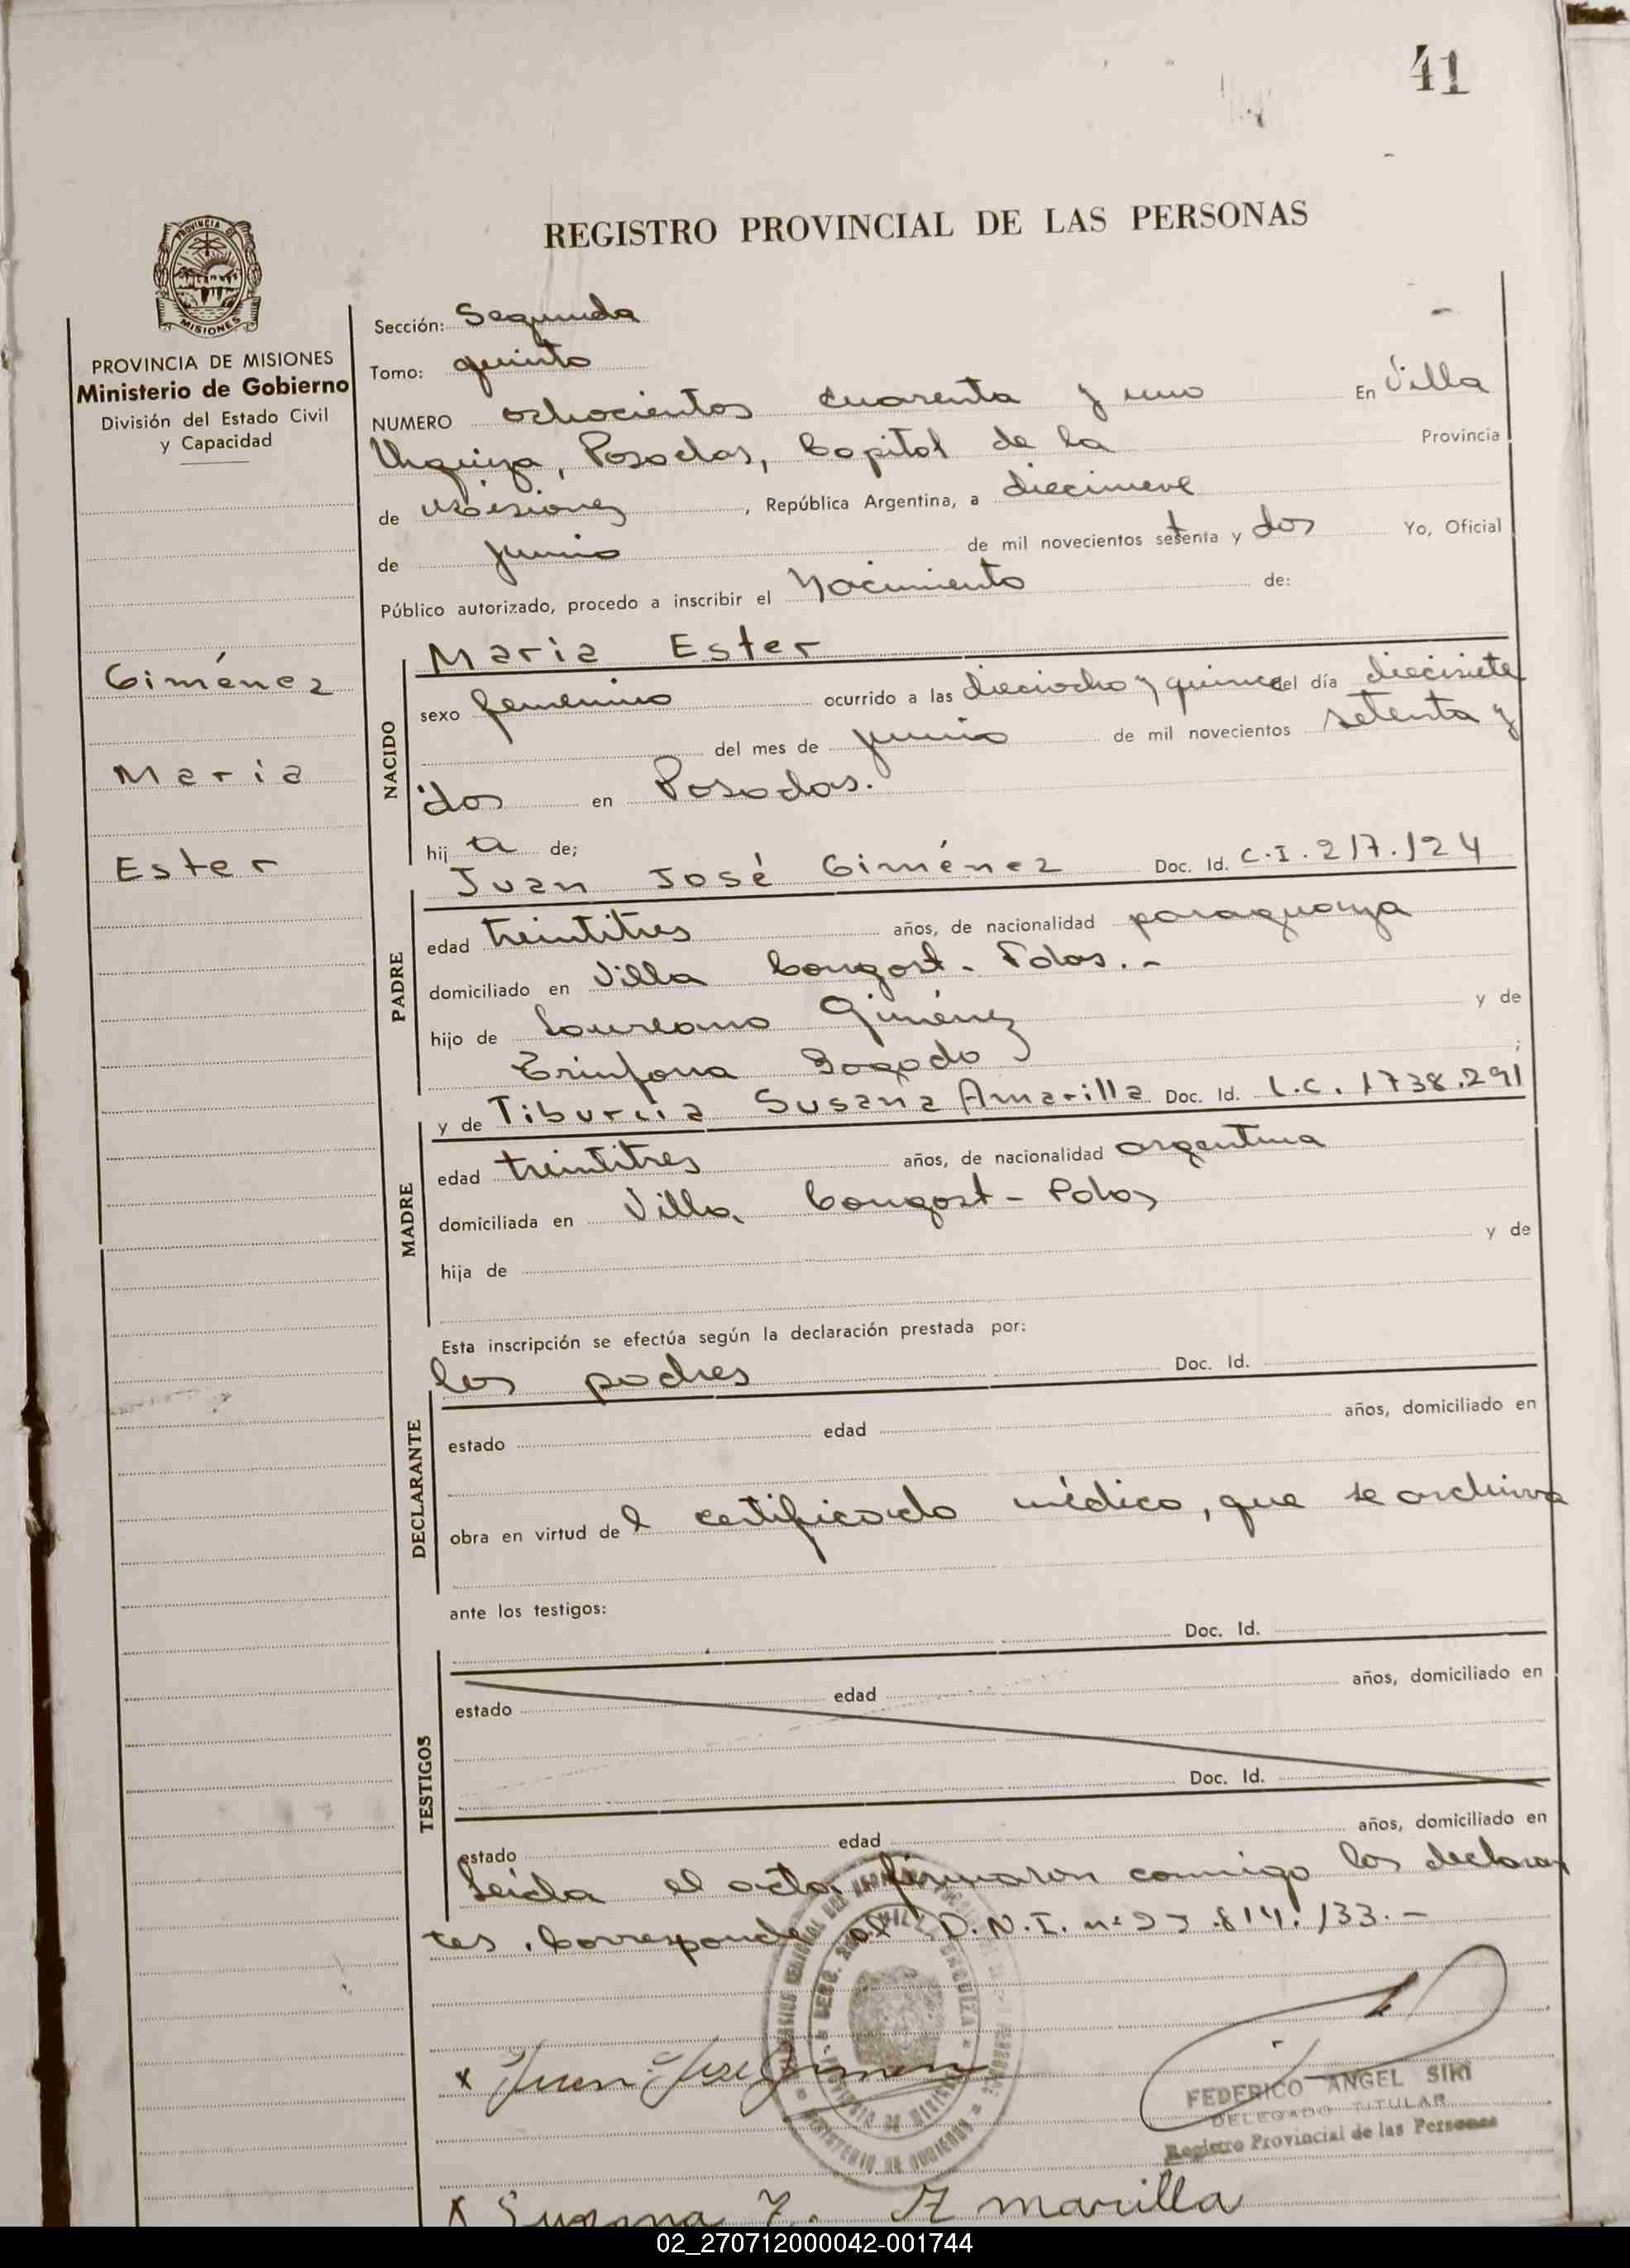 41
REGISTRO PROVINCIAL DE LAS PERSONAS
PROVINCIA DE
MISIONES
PROVINCIA DE MISIONES
Ministerio de Gobierno
División del Estado Civil
y Capacidad
Giménez
Maria
Ester
Sección: Segunda
Tomo: quinto
NUMERO ochocientos cuarenta y uno En Villa
Urquiza, Posadas, Capital de la Provincia
de Misiones, República Argentina, a diecinueve
de junio de mil novecientos setenta y dos Yo, Oficial
Público autorizado, procedo a inscribir el Nacimiento de:
NACIDO
Maria Ester
sexo femenino ocurrido a las dieciocho y quince del día diecisiete
del mes de junio de mil novecientos setenta y
dos en Posadas.
hij a de;
PADRE
Juan José Giménez Doc. Id. C.I. 217.124
edad treintitres años, de nacionalidad paraguaya
domiciliado en Villa Congost - Pdas. -
hijo de Laureano Giménez y de
Trinfona Bogado ;
MADRE
y de Tiburcia Susana Amarilla Doc. Id. L.C. 1738.291
edad treintitres años, de nacionalidad argentina
domiciliada en Villa Congost - Pdas
hija de y de
DECLARANTE
Esta inscripción se efectúa según la declaración prestada por:
los padres Doc. Id.
estado edad años, domiciliado en
obra en virtud de l certificado médico, que se archiva
ante los testigos:
TESTIGOS
Doc. Id.
estado edad años, domiciliado en
Doc. Id.
estado edad años, domiciliado en
Leida el acta, firmaron conmigo los declaran
tes. Corresponde al D.N.I. nº .814.133.-
x Juan Jose Gimenez
FEDERICO ANGEL SIRI
DELEGADO TITULAR
Registro Provincial de las Personas
x Susana T. Amarilla
02_270712000042-001744